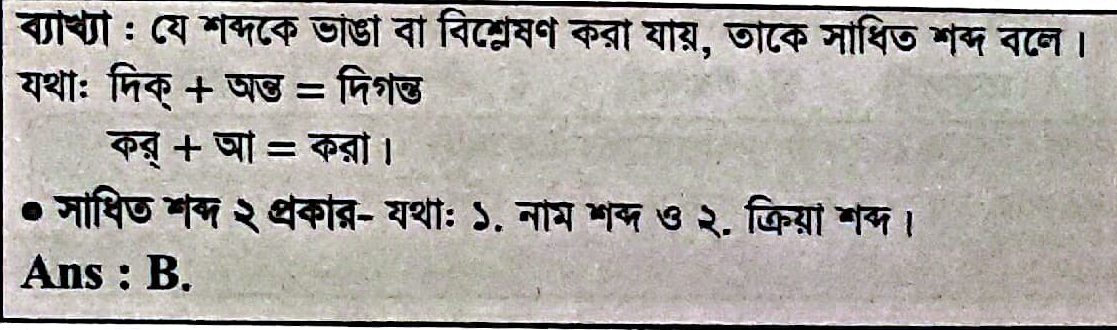 ব্যাখ্যা : যে শব্দকে ভাঙা বা বিশ্লেষণ করা যায়, তাকে সাধিত শব্দ বলে।
যথা: দিক্ + অন্ত = দিগন্ত
কর্ + আ = করা।
● সাধিত শব্দ ২ প্রকার- যথা: ১. নাম শব্দ ও ২. ক্রিয়া শব্দ।
Ans : B.